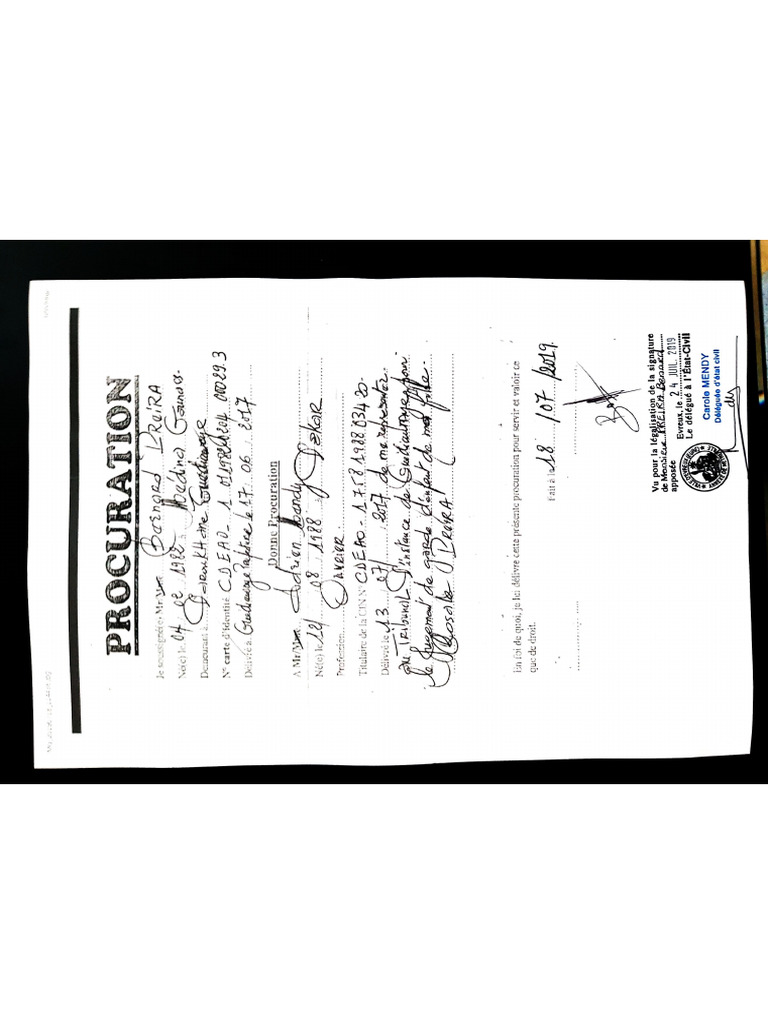 PROCURATION
Je soussigné(e) Mr/Mme Barnard PREIRA
Né(e) le 04 02 1988 à Médina Gounass
Demeurant à Darou Khane Guédiawaye
N° carte d'identité CDEAO_ 1 01988 0204 00029.3
Délivré à Guédiawaye le 17.06.2017
Donne Procuration
A Mr/Mme Adrien Mendy
Né(e) le 12 08 1988 Dakar
Profession Ouvrier
Titulaire de la CIN N° CDEAO - 1 758 1988 03420.
Délivré le 13 07 2017 de me représenter
au Tribunal d'instance de Guédiawaye pour
le jugement de garde d'enfant de ma fille
Rosalie PREIRA
En foi de quoi, je lui délivre cette présente procuration pour servir et valoir ce
que de droit.
Fait à le 18 / 07 / 2019.
Vu pour la légalisation de la signature
de Monsieur PREIRA Benard
apposée
Evreux, le 24 JUIL. 2019
Le délégué à l'État-Civil
Carole MENDY
Déléguée d'état civil